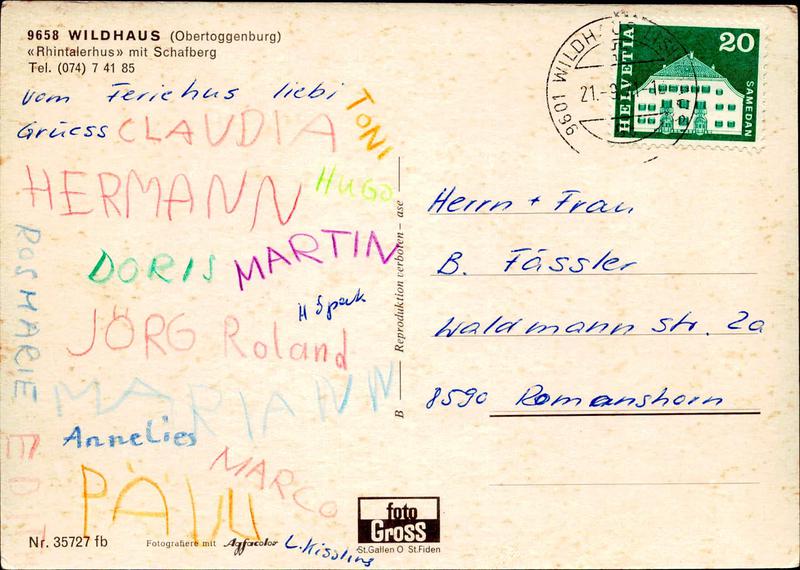 9658 WILDHAUS (Obertoggenburg)
«Rhintalerhus» mit Schafberg
Tel. (074) 7 41 85
vom Feriehus liebi
Grüess
CLAUDIA
TONI
HERMANN
HUGO
DORIS
MARTIN
ROSMARIE
JÖRG
Roland
MARIANN
Annelies
MARCO
EDIT
PÄUU
L. Kissling
Nr. 35727 fb
Fotografiere mit Agfacolor
foto
Gross
St.Gallen O St.Fiden
B
Reproduktion verboten – ase
9601 WILDHAUS
21.
HELVETIA
20
SAMEDAN
Herrn + Frau
B. Fässler
Waldmann str. 2a
8590 Romanshorn